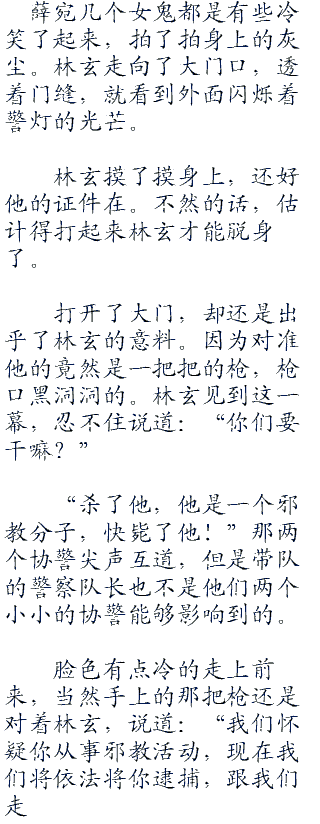 薛宛几个女鬼都是有些冷
笑了起来，拍了拍身上的灰
尘。林玄走向了大门口，透
着门缝，就看到外面闪烁着
警灯的光芒。
林玄摸了摸身上，还好
他的证件在。不然的话，估
计得打起来林玄才能脱身
了。
打开了大门，却还是出
乎了林玄的意料。因为对准
他的竟然是一把把的枪，枪
口黑洞洞的。林玄见到这一
幕，忍不住说道：“你们要
干嘛？”
“杀了他，他是一个邪
教分子，快毙了他！”那两
个协警尖声互道，但是带队
的警察队长也不是他们两个
小小的协警能够影响到的。
脸色有点冷的走上前
来，当然手上的那把枪还是
对着林玄，说道：“我们怀
疑你从事邪教活动，现在我
们将依法将你逮捕，跟我们
走